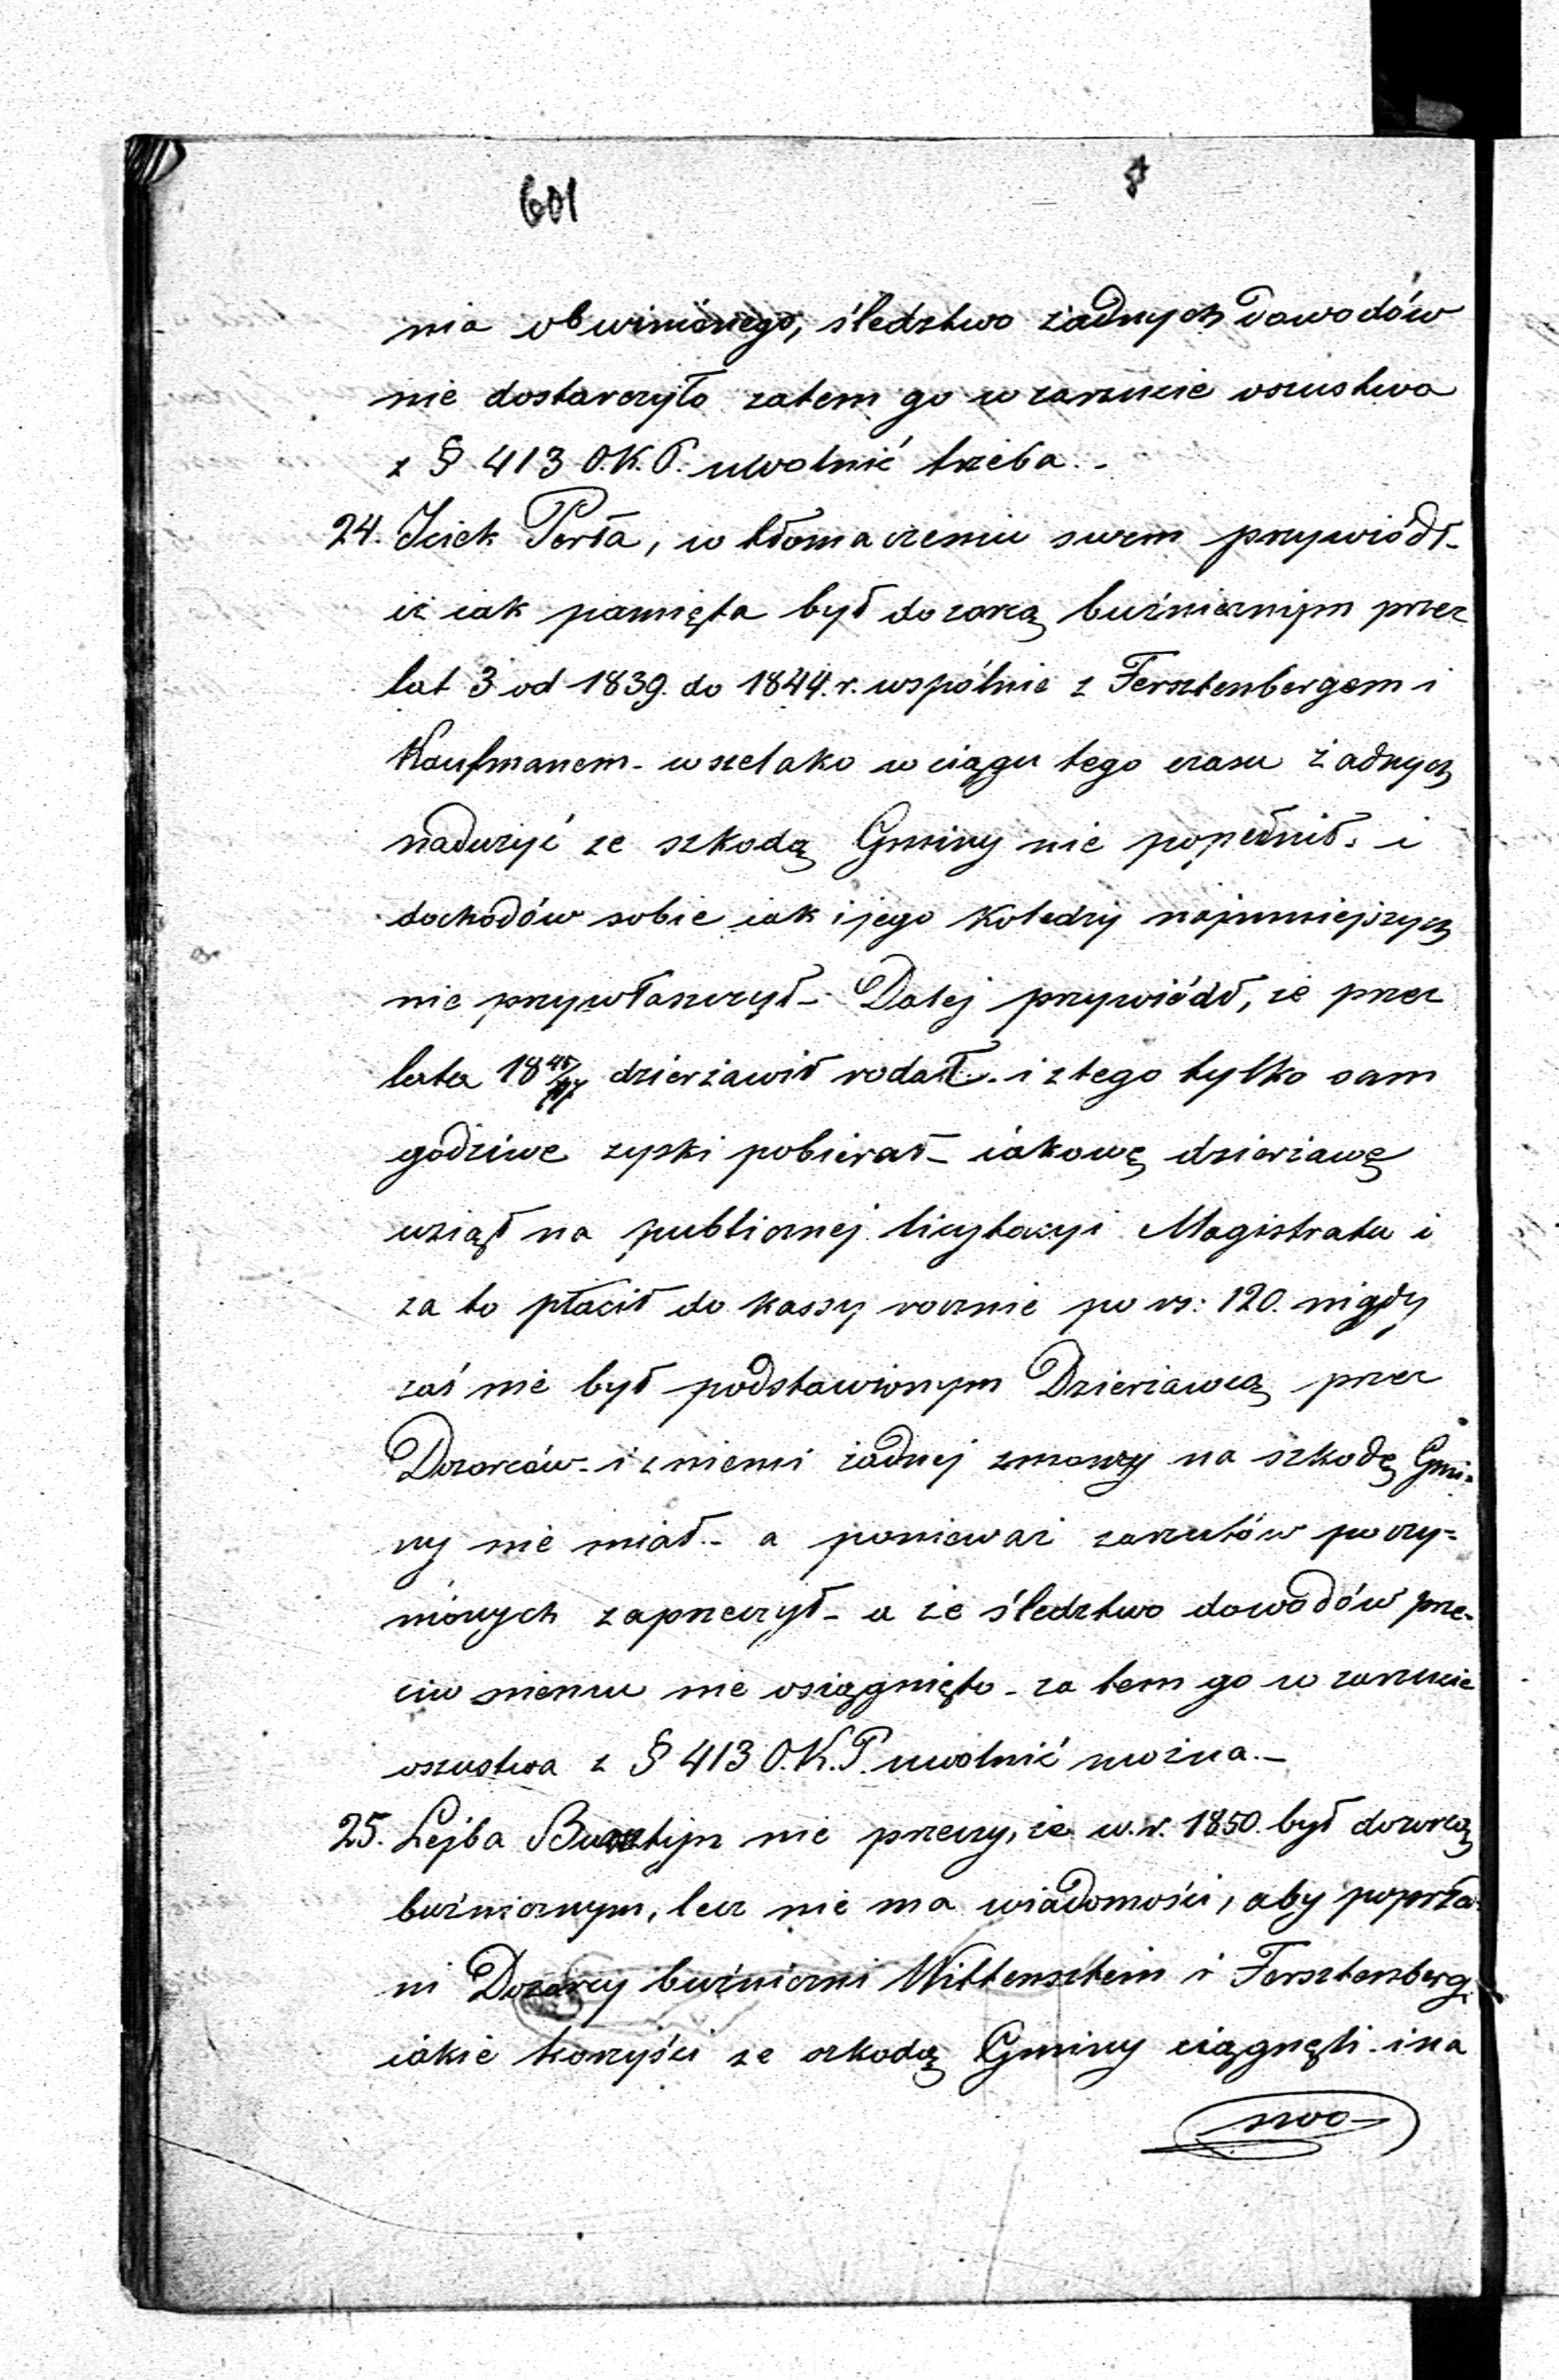 601
nia obwinionego, śledztwo żadnych dowodów
nie dostarczyło zatem go w zarzucie oszustwa
z § 413 O.K.P. uwolnić trzeba.-
24. Icek Perła, w tłomaczeniu swem przywiódł-
iż iak pamięta był dozorcą bużnicznym przez
lat 3 od 1839. do 1844. r. wspólnie z Fersztenbergem i
Kaufmanem- wszelako w ciągu tego czasu żadnych
nadużyć ze szkodą Gminy nie popełnił. i
dochodów sobie iak i jego Koledzy najmniejszych
nie przywłaszczył- Dalej przywiódł, że przez
lata 18 45/ dzierżawił rodał. i z tego tylko sam
godziwe zyski pobierał- iakowę dzierżawę
wziął na publicznej licytacyi Magistratu i
za to płacił do kassy rocznie po rs: 120. nigdy
zaś nie był podstawionym Dzierżawcą przez
Dozorców- i z niemi żadnej zmowy na szkodę Gmi=
ny nie miał.- a ponieważ zarzutów poczy=
nionych zaprzeczył- a że śledztwo dowodów prze-
ciw niemu nie osiągnięto- za tem go w zarzucie
oszustwa z § 413 O.K.P. uwolnić można.-
25. Lejba Bursztyn nie przeczy, że w. r. 1850. był dozorcą
bużnicznym, lecz nie ma wiadomości, aby poprza-
ni Dozorcy bużniczni Wittensztein i Fersztenberg,
iakie korzyści ze szkodą Gminy ciągnęli. i na